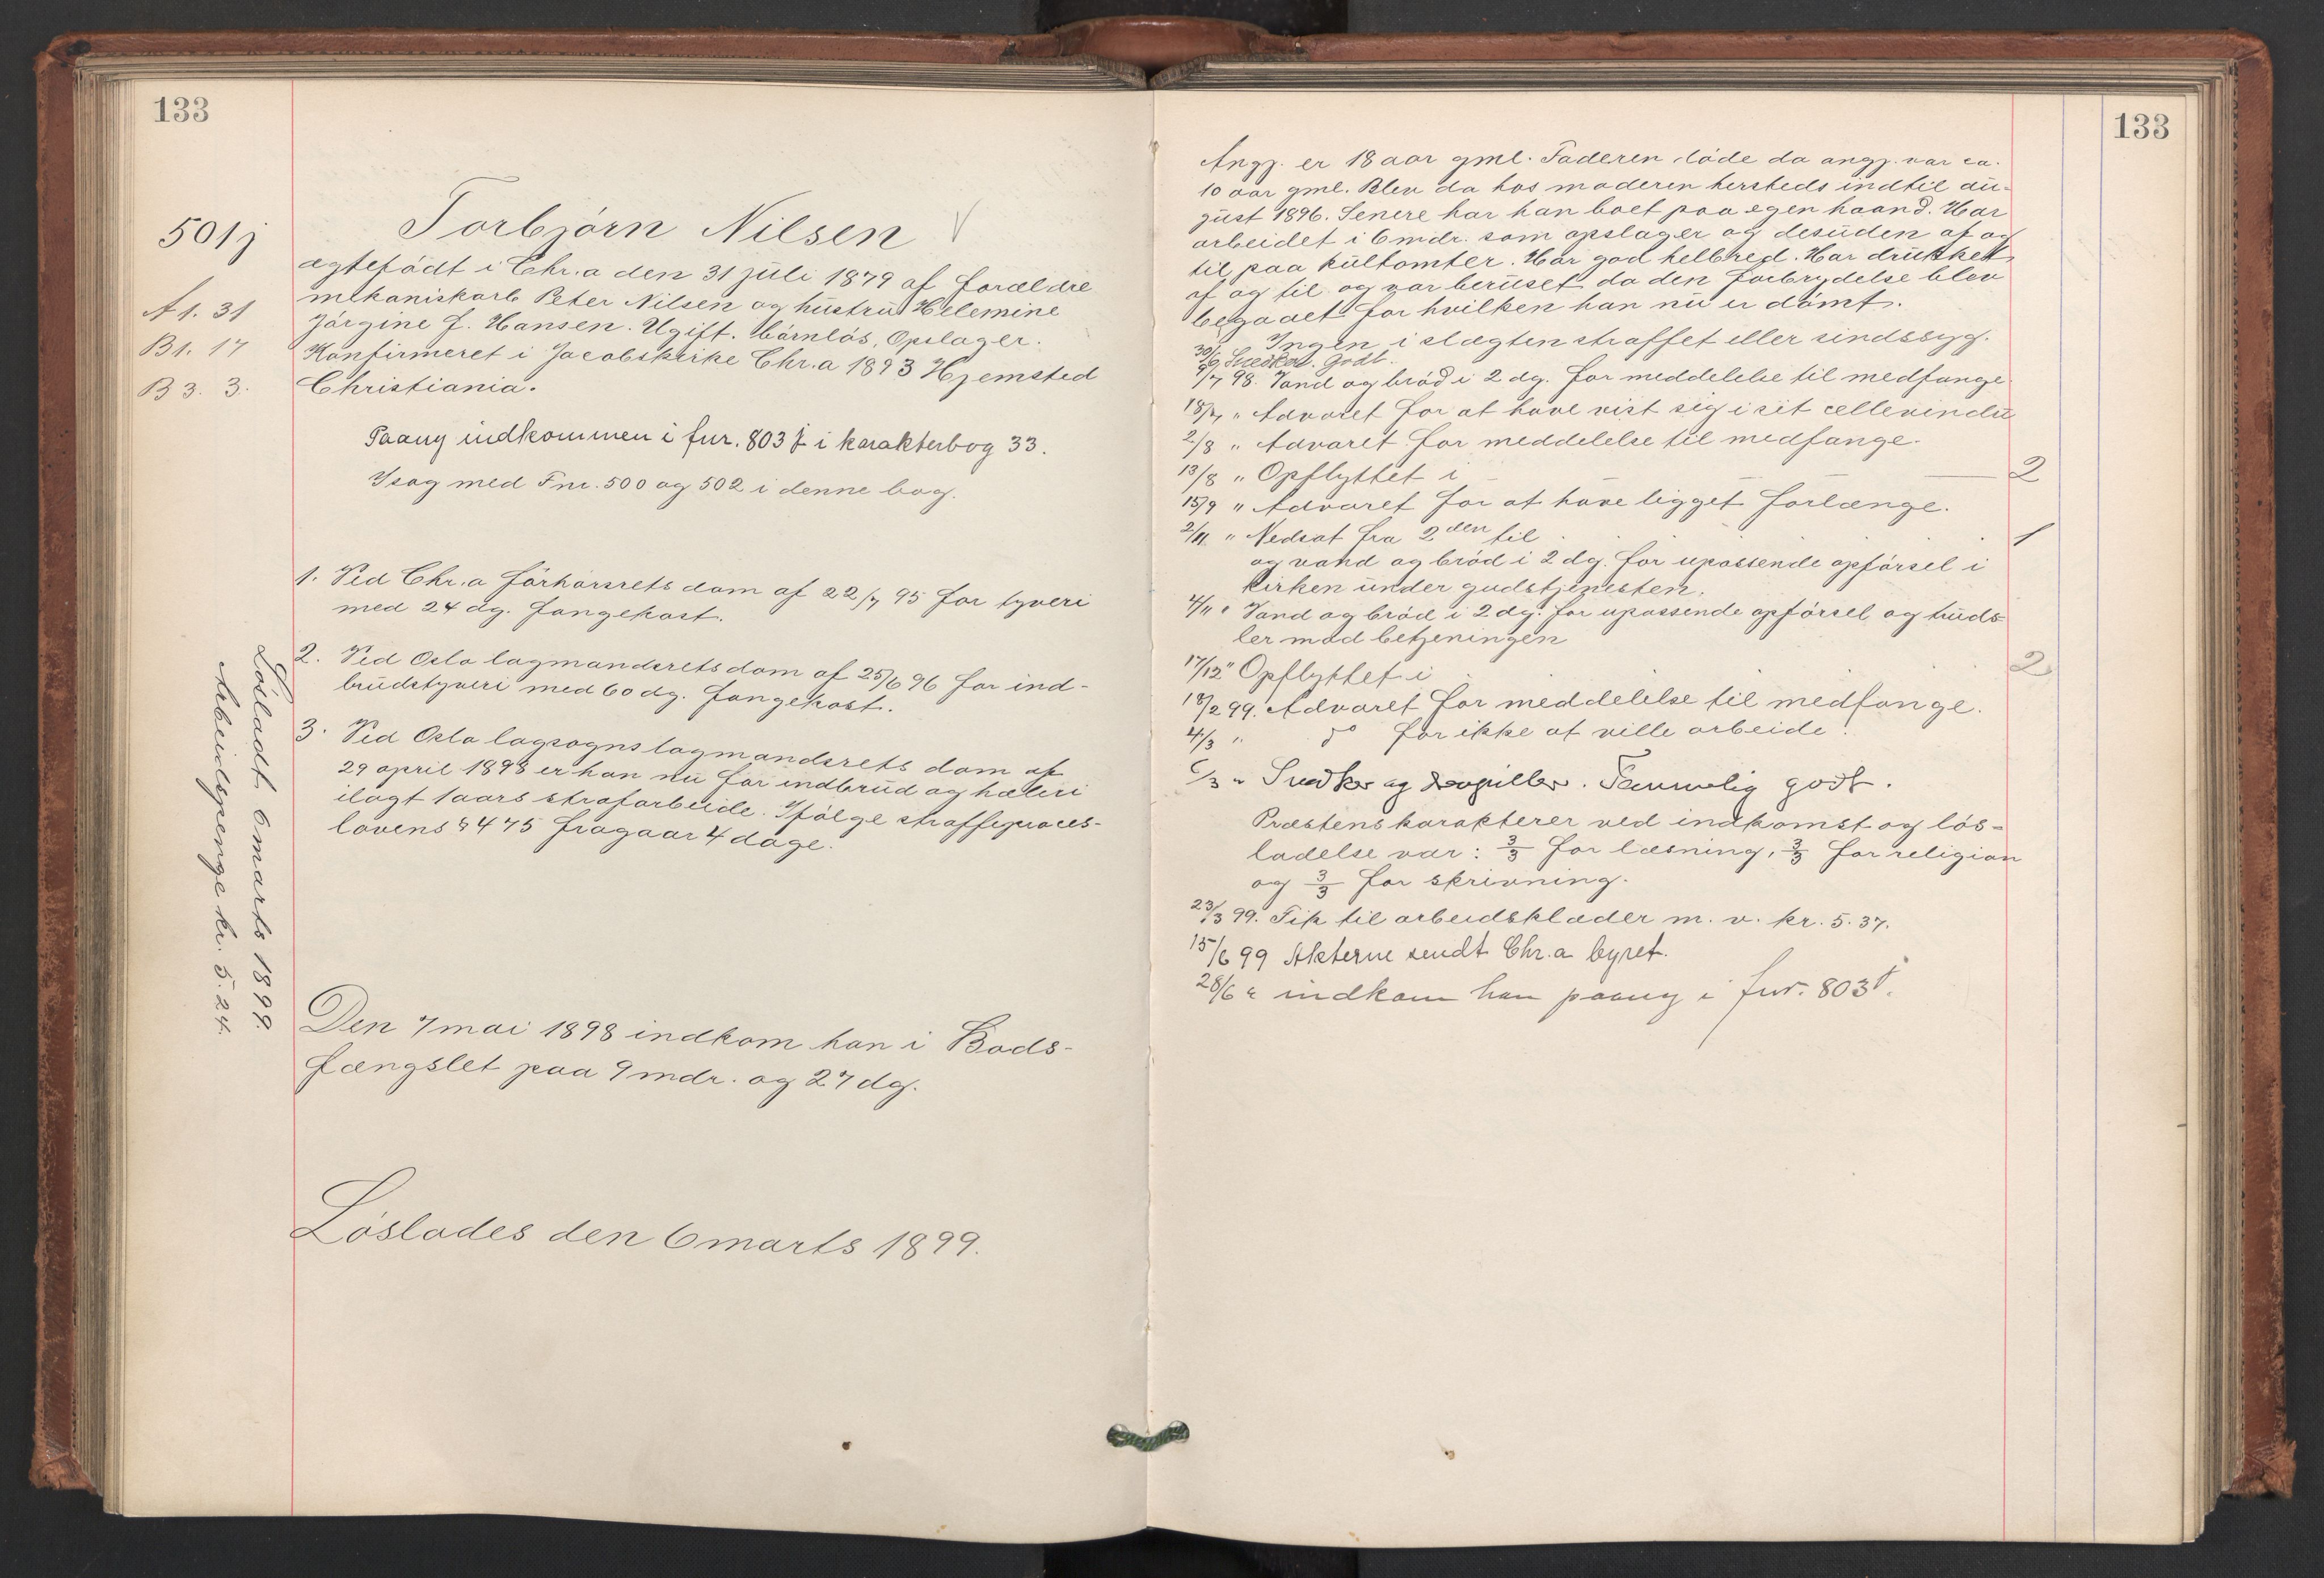 133
501j
A 1. 31
B 1. 17
B 3. 3.
Torbjörn Nilsen
ægtefödt i Chr.a den 31 juli 1879 af forældre
mekaniskarb. Peter Nilsen og hustru Helemine
Jörgine f. Hansen. Ugift. barnlös, Opslager.
Konfirmeret i Jacobskirke Chr.a 1893 Hjemsted
Christiania.
Paany indkommen i fnr. 803 j i karakterbog 33.
I sag med Fnr. 500 og 502 i denne bog.
1. Ved Chr.a förhörsrets dom af 22/7 95 for tyveri
med 24 dg. fangekost.
2. Ved Oslo lagmandsrets dom af 25/6 96 for ind-
brudstyveri med 60 dg. fangekost.
3. Ved Oslo lagsogns lagmandsrets dom af
29 april 1898 er han nu for indbrud og hæleri
ilagt 1 aars strafarbeide. Ifölge straffeproces-
lovens § 475 fragaar 4 dage.
Lösladt 6 marts 1899.
Arbeidspenge kr. 5.24.
Den 7 mai 1898 indkom han i Bods-
fængslet paa 9 mdr. og 27 dg.
Löslades den 6 marts 1899.
133
Angj. er 18 aar gml. Faderen döde da angj. var ca.
10 aar gml. Blev da hos moderen hersteds indtil au-
gust 1896. Senere har han boet paa egen haand. Har
arbeidet i 6 mdr. som opslager og desuden af og
til paa kultomter. Har god helbred. Har drukket
af og til og var beruset da den forbrydelse blev
begaaet for hvilken han nu er dömt.
Ingen i slægten straffet eller sindssyg.
30/6 Snedker. Godt.
9/7 98. Vand og bröd i 2 dg. for meddelelse til medfange.
18/7 " Advaret for at have vist sig i sit cellevindu
2/8 " Advaret for meddelelse til medfange.
13/8 " Opflyttet i 2
15/9 " Advaret for at have ligget forlænge.
2/11 " Nedsat fra 2den til 1
og vand og bröd i 2 dg. for upassende opförsel i
kirken under gudstjenesten.
4/11 " Vand og bröd i 2 dg. for upassende opförsel og truds-
ler mod betjeningen
17/12 " Opflyttet i 2
18/2 99. Advaret for meddelelse til medfange.
4/3 " do for ikke at ville arbeide.
6/3 " Snedker og . Temmelig godt.
Præstens karakterer ved indkomst og lös-
ladelse var: 3/3 for læsning, 3/3 for religion
og 3/3 for skrivning.
23/3 99. Fik til arbeidsklæder m. v. kr. 5.37.
15/6 99 Akterne sendt Chr.a byret.
28/6 " indkom han paany i fnr. 803 j.